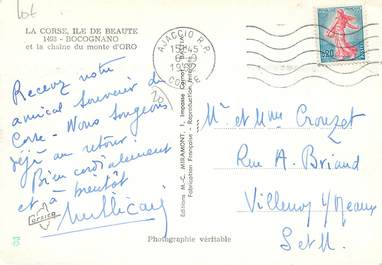 Lot
LA CORSE, ILE DE BEAUTE
1403 - BOCOGNANO
et la chaîne du monte d'ORO
AJACCIO R.P.
15H45
CORSE
0,20
Recevez notre
amical souvenir de
Corse - Nous songeons
déjà au retour !
Bien cordialement
et à bientôt
20
Editions M.-C. MIRAMONT, 1, Impasse
Fabrication Française - Reproduction interdite
Mr et Mme Crouzet
Rue A. Briand
Villenoy s/Meaux
S et M.
Photographie véritable